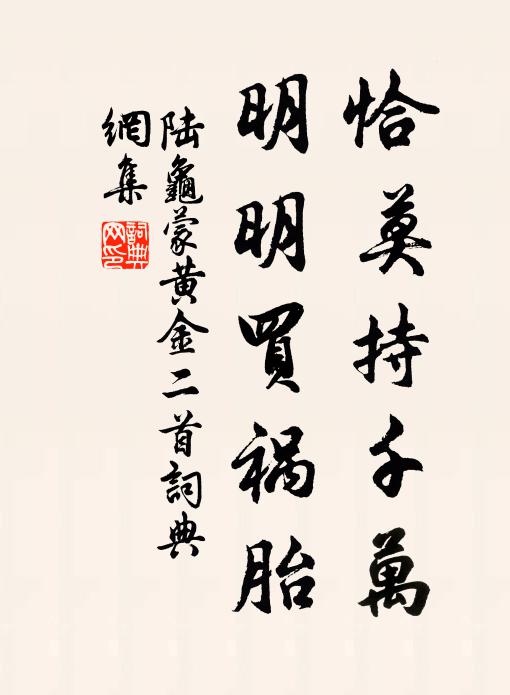 恰莫持千萬
明明買禍胎
陸龜蒙黃金二首詞典
網集
詞典
网印